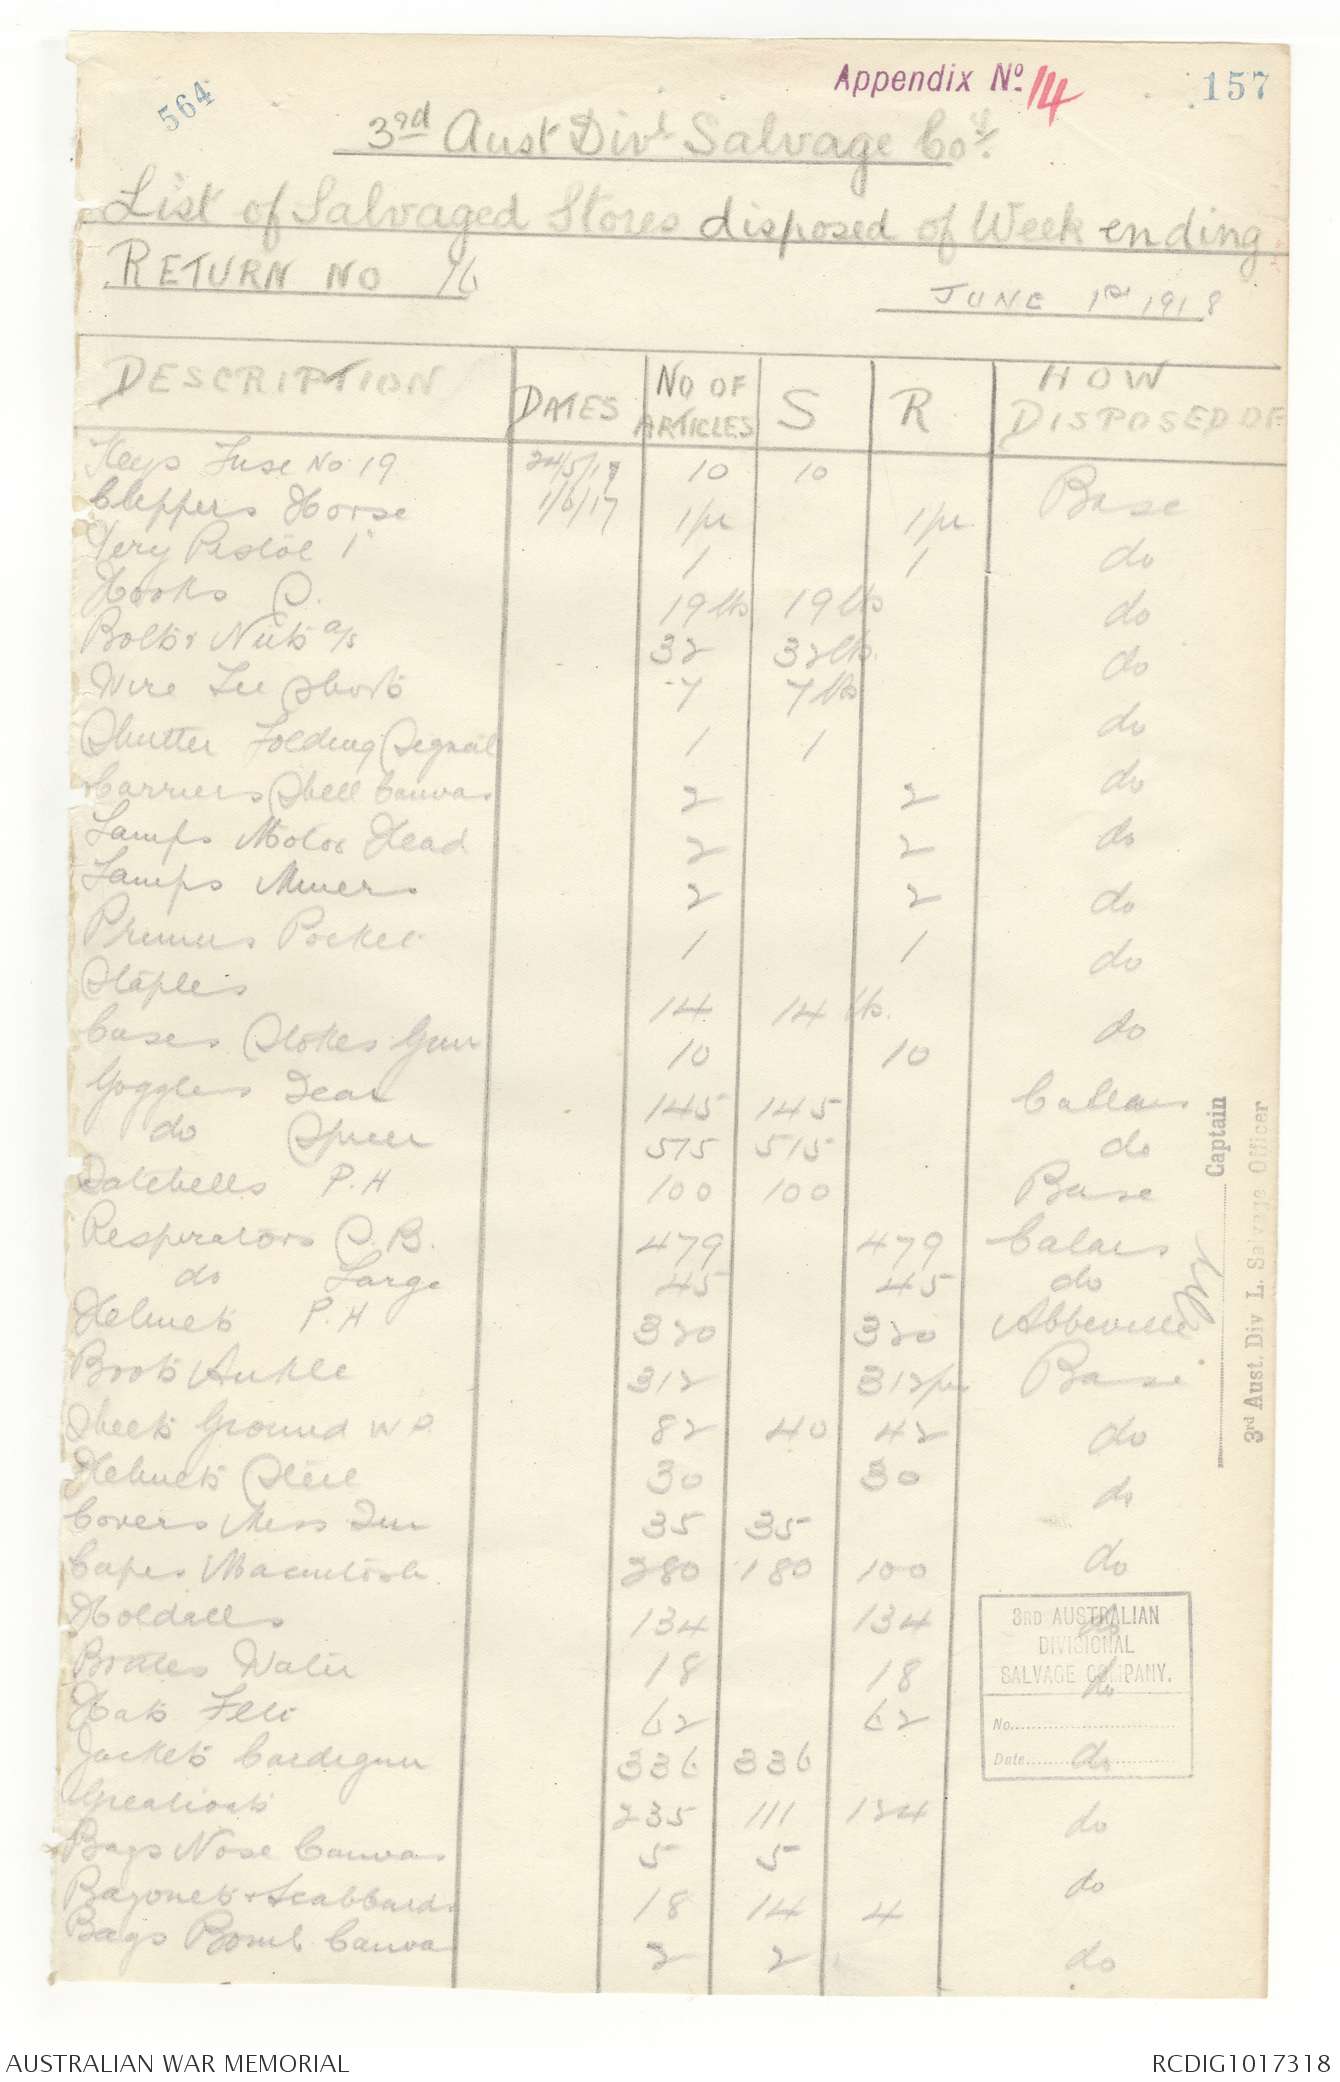 564
Appendix No. 14
157
3rd Aust Divl Salvage Coy.
List of Salvaged Stores disposed of Week ending
RETURN NO 16
JUNE 1st 1918
DESCRIPTION DATES NO OF ARTICLES S R HOW DISPOSED OF
Keys Fuse No 19 24/5/17 10 10
Clippers Horse 1/6/17 1 pr 1 pr Base
Very Pistol 1" 1 1 do
Hooks S. 19 lbs 19 lbs do
Bolts & Nuts a/s 32 32 lbs. do
Wire 7 7 lbs
Shutter Folding Signal 1 1 do
Carriers Shell Canvas 2 2 do
Lamps Motor Head 2 2 do
Lamps Miners 2 2 do
Primus Pocket 1 1 do
Staples 14 14 lbs.
Cases Stokes Gun 10 10 do
Goggles Tear 145 145 Calais
do Spicer 575 515 do
Satchells P.H 100 100 Base
Respirators S.B. 479 479 Calais
do Large 45 45 do
Helmets P.H 320 320 Abbeville
Boots Ankle 312 312 prs Base
Sheets Ground W P 82 40 42 do
Helmets Steel 30 30 do
Covers Mess Tin 35 35
Capes Macintosh 280 180 100 do
Holdalls 134 134 do
Bottles Water 18 18 do
Hats Felt 62 62
Jackets Cardigan 336 336 do
Greatcoats 235 111 124 do
Bags Nose Canvas 5 5
Bayonets & Scabbards 18 14 4 do
Bags Bomb Canvas 2 2 do
Captain
3rd Aust. Div L. Salvage Officer
3RD AUSTRALIAN
DIVISIONAL
SALVAGE COMPANY.
No.
Date
AUSTRALIAN WAR MEMORIAL
RCDIG1017318